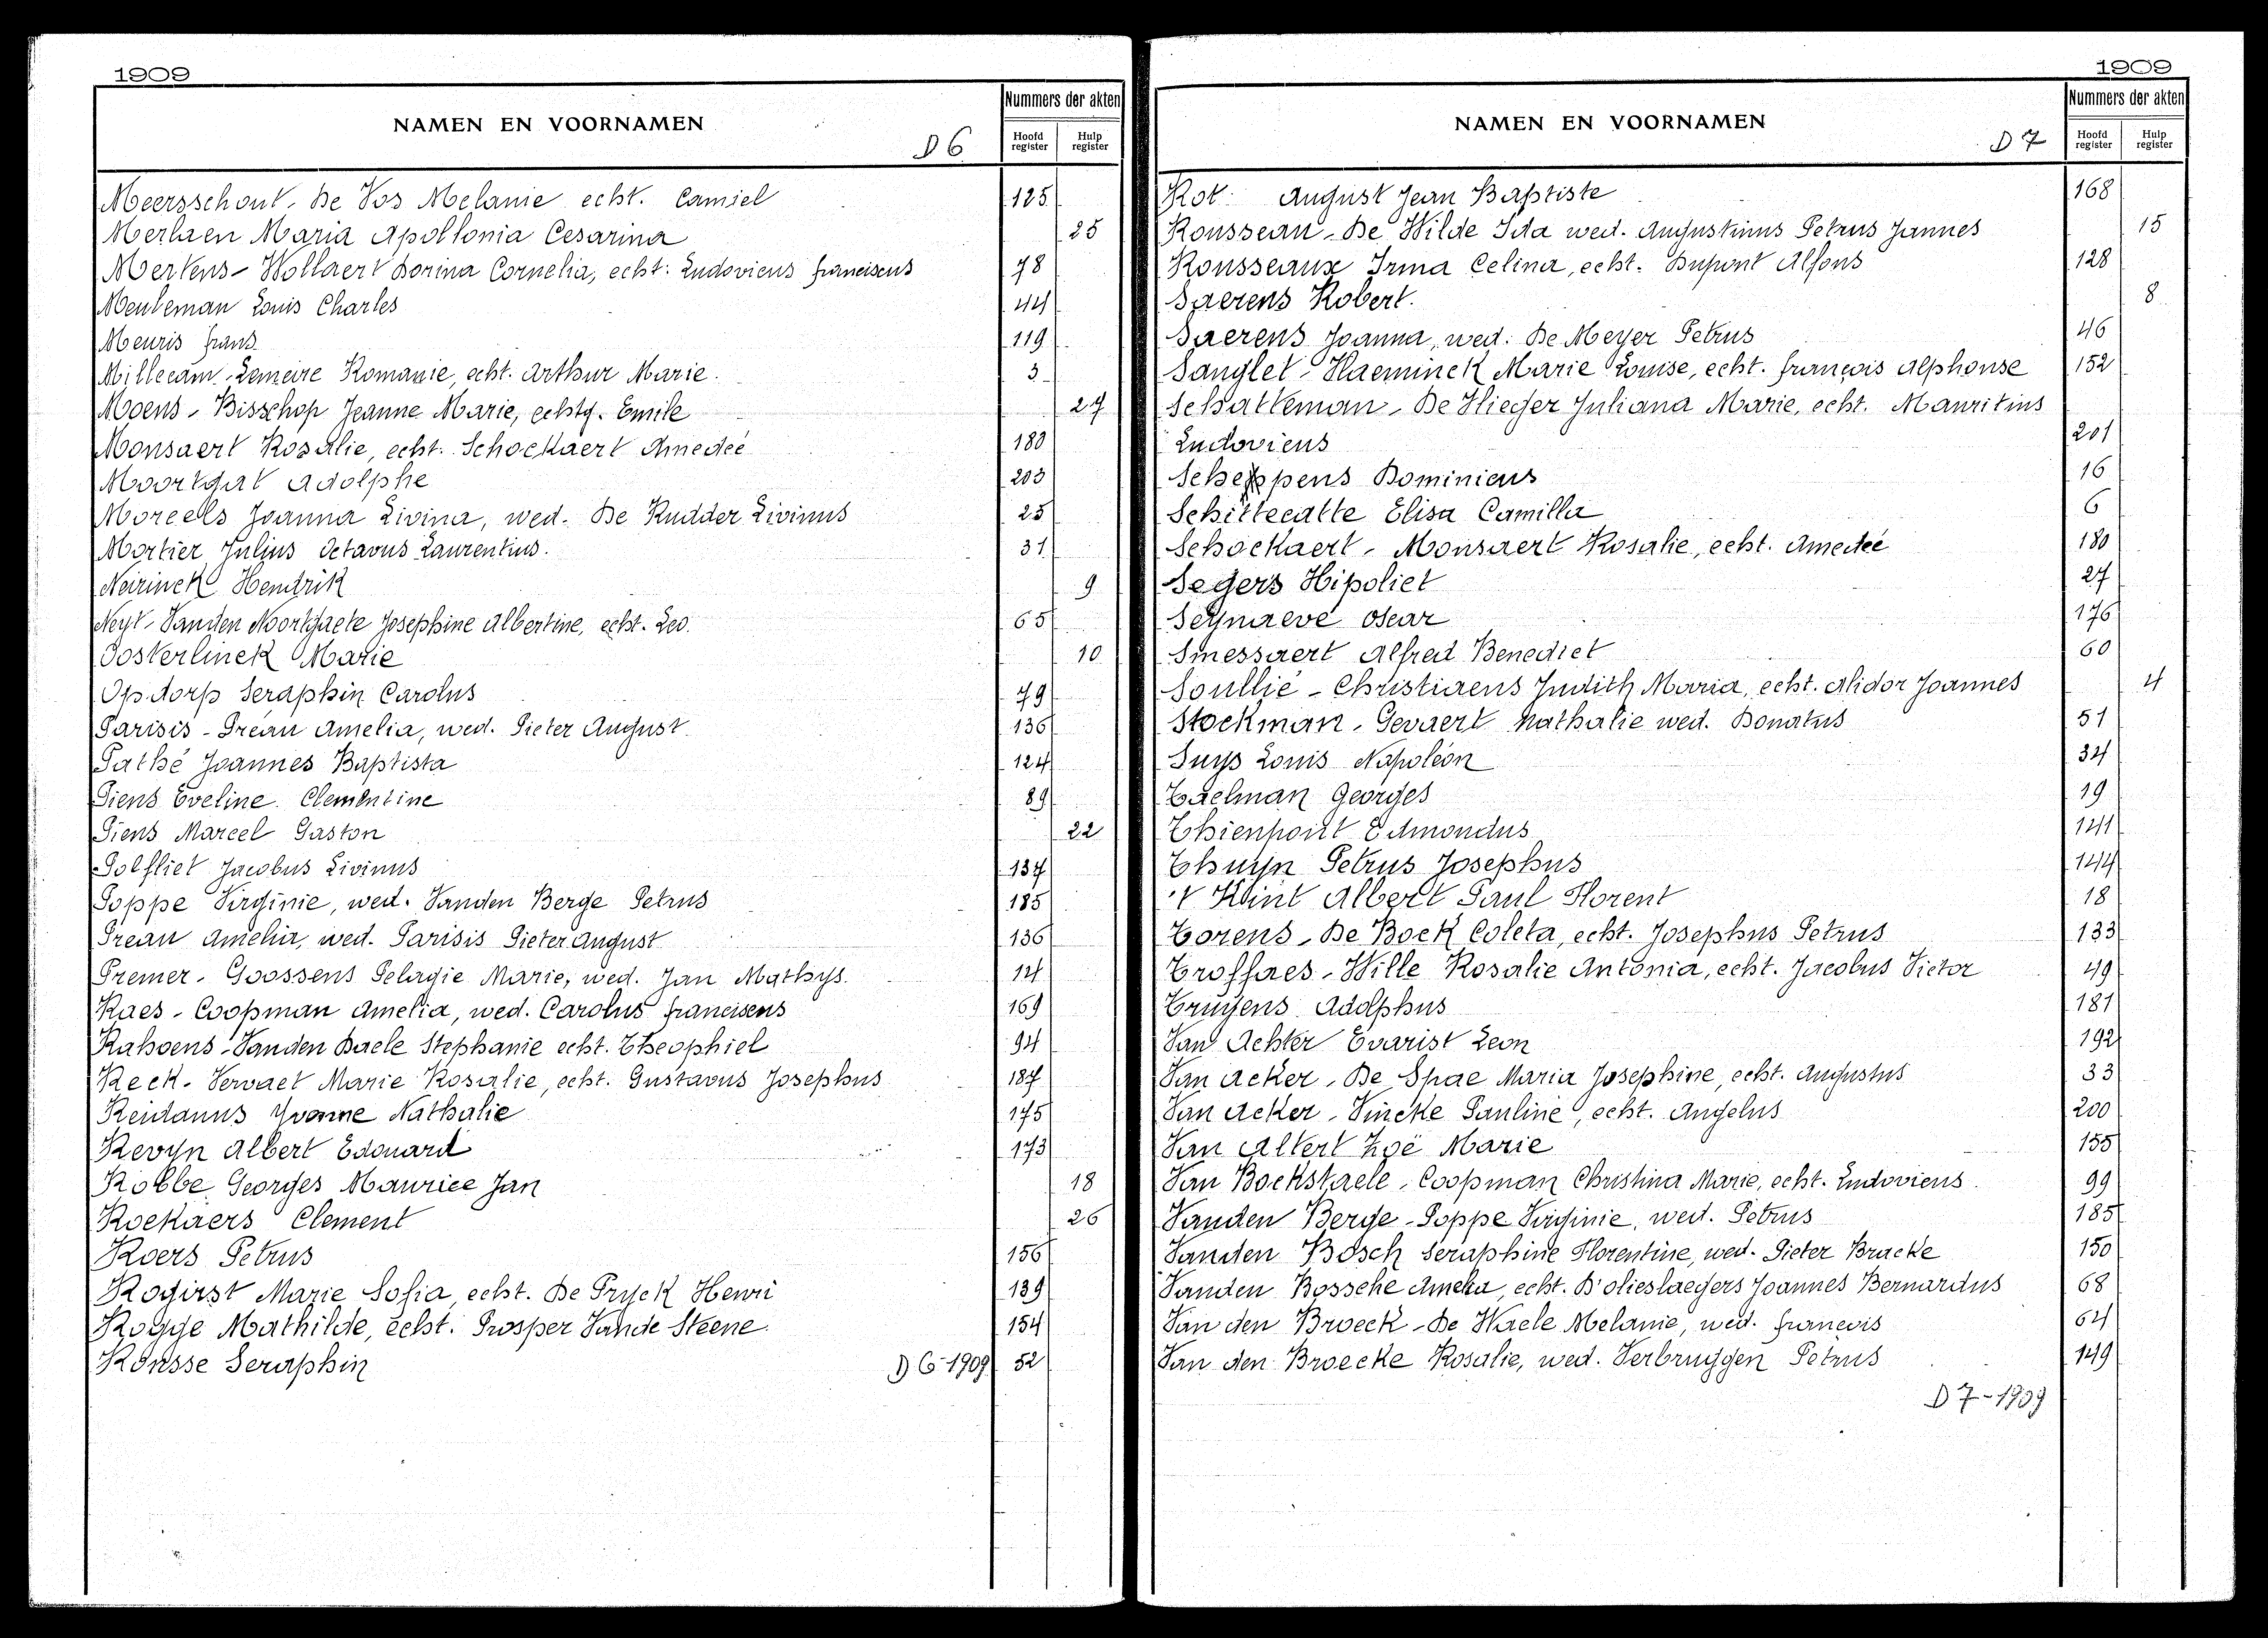 1909
NAMEN EN VOORNAMEN
D 6
Nummers der akten
Hoofd register
Hulp register
Meersschout - De Vos Melanie echt. Camiel 125
Merlaen Maria Apollonia Cesarina 25
Mertens - Wollaert Dorina Cornelia, echt. Ludovicus franciscus 78
Meuleman Louis Charles 44
Meuris frans 119
Millecam - Lemeire Romanie, echt. Arthur Marie. 3
Moens - Bisschop Jeanne Marie, echtg. Emile 27
Monsaert Rosalie, echt. Schockaert Amedeé 180
Moortgat Adolphe 203
Moreels Joanna Livina, wed. De Rudder Livinus 25
Mortier Julius Octavus Laurentius. 31
Neirinck Hendrik 9
Neyt - Vanden Noortgaete Josephine Albertine, echt. Leo. 65
Oosterlinck Marie 10
Opdorp Seraphin Carolus 79
Parisis - Préau Amelia, wed. Pieter August 136
Pathé Joannes Baptista 124
Piens Eveline Clementine 89
Piens Marcel Gaston 22
Polfliet Jacobus Livinus 137
Poppe Virginie, wed. Vanden Berge Petrus 185
Preau Amelia, wed. Parisis Pieter August 136
Premer - Goossens Pelagie Marie, wed. Jan Mathys. 14
Raes - Coopman Amelia, wed. Carolus franciscus 169
Rahoens - Vanden Daele Stephanie echt. Theophiel 94
Reck - Vervaet Marie Rosalie, echt. Gustavus Josephus 187
Reidanus Yvonne Nathalie 175
Revyn Albert Edouard 173
Robbe Georges Maurice Jan 18
Roekaers Clement 26
Roers Petrus 156
Rogirst Marie Sofia, echt. De Pryck Henri 139
Rogge Mathilde, echt. Prosper Vande Steene. 154
Ronsse Seraphin 52
D 6-1909
1909
NAMEN EN VOORNAMEN
D 7
Nummers der akten
Hoofd register
Hulp register
Rot August Jean Baptiste 168
Rousseau - De Wilde Ida wed. Augustinus Petrus Jannes 15
Rousseaux Irma Celina, echt. Dupont Alfons 128
Saerens Robert. 8
Saerens Joanna, wed. De Meyer Petrus 46
Sanglet - Haeminck Marie Louise, echt. françois Alphonse 152
Schatteman - De Vlieger Juliana Marie, echt. Mauritius
Ludovicus 201
Scheppens Dominicus 16
Schittecatte Elisa Camilla 6
Schockaert - Monsaert Rosalie, echt. Amedeé 180
Segers Hipoliet 27
Seynaeve Oscar 176
Smessaert Alfred Benedict 60
Soullié - Christiaens Judith Maria, echt. Alidor Joannes 4
Stockman - Gevaert Nathalie wed. Donatus 51
Suys Louis Napoléon 34
Taelman Georges 19
Thienpont Edmondus 141
Thuyn Petrus Josephus 144
't Kint Albert Paul Florent 18
Torens - De Bock Coleta, echt. Josephus Petrus 133
Troffaes - Wille Rosalie Antonia, echt. Jacobus Victor 49
Truyens Adolphus 181
Van Achter Evarist Leon 192
Van Acker - De Spae Maria Josephine, echt. Augustus 33
Van Acker - Vincke Pauline, echt. Angelus 200
Van Altert Zoë Marie 155
Van Bockstaele - Coopman Christina Marie, echt. Ludovicus 99
Vanden Berge - Poppe Virginie, wed. Petrus 185
Vanden Bosch Seraphine Florentine, wed. Pieter Bracke 150
Vanden Bossche Amelia, echt. D'olieslaegers Joannes Bernardus 68
Van den Broeck - De Waele Melanie, wed. françois 64
Van den Broecke Rosalie, wed. Verbruggen Petrus 149
D 7-1909